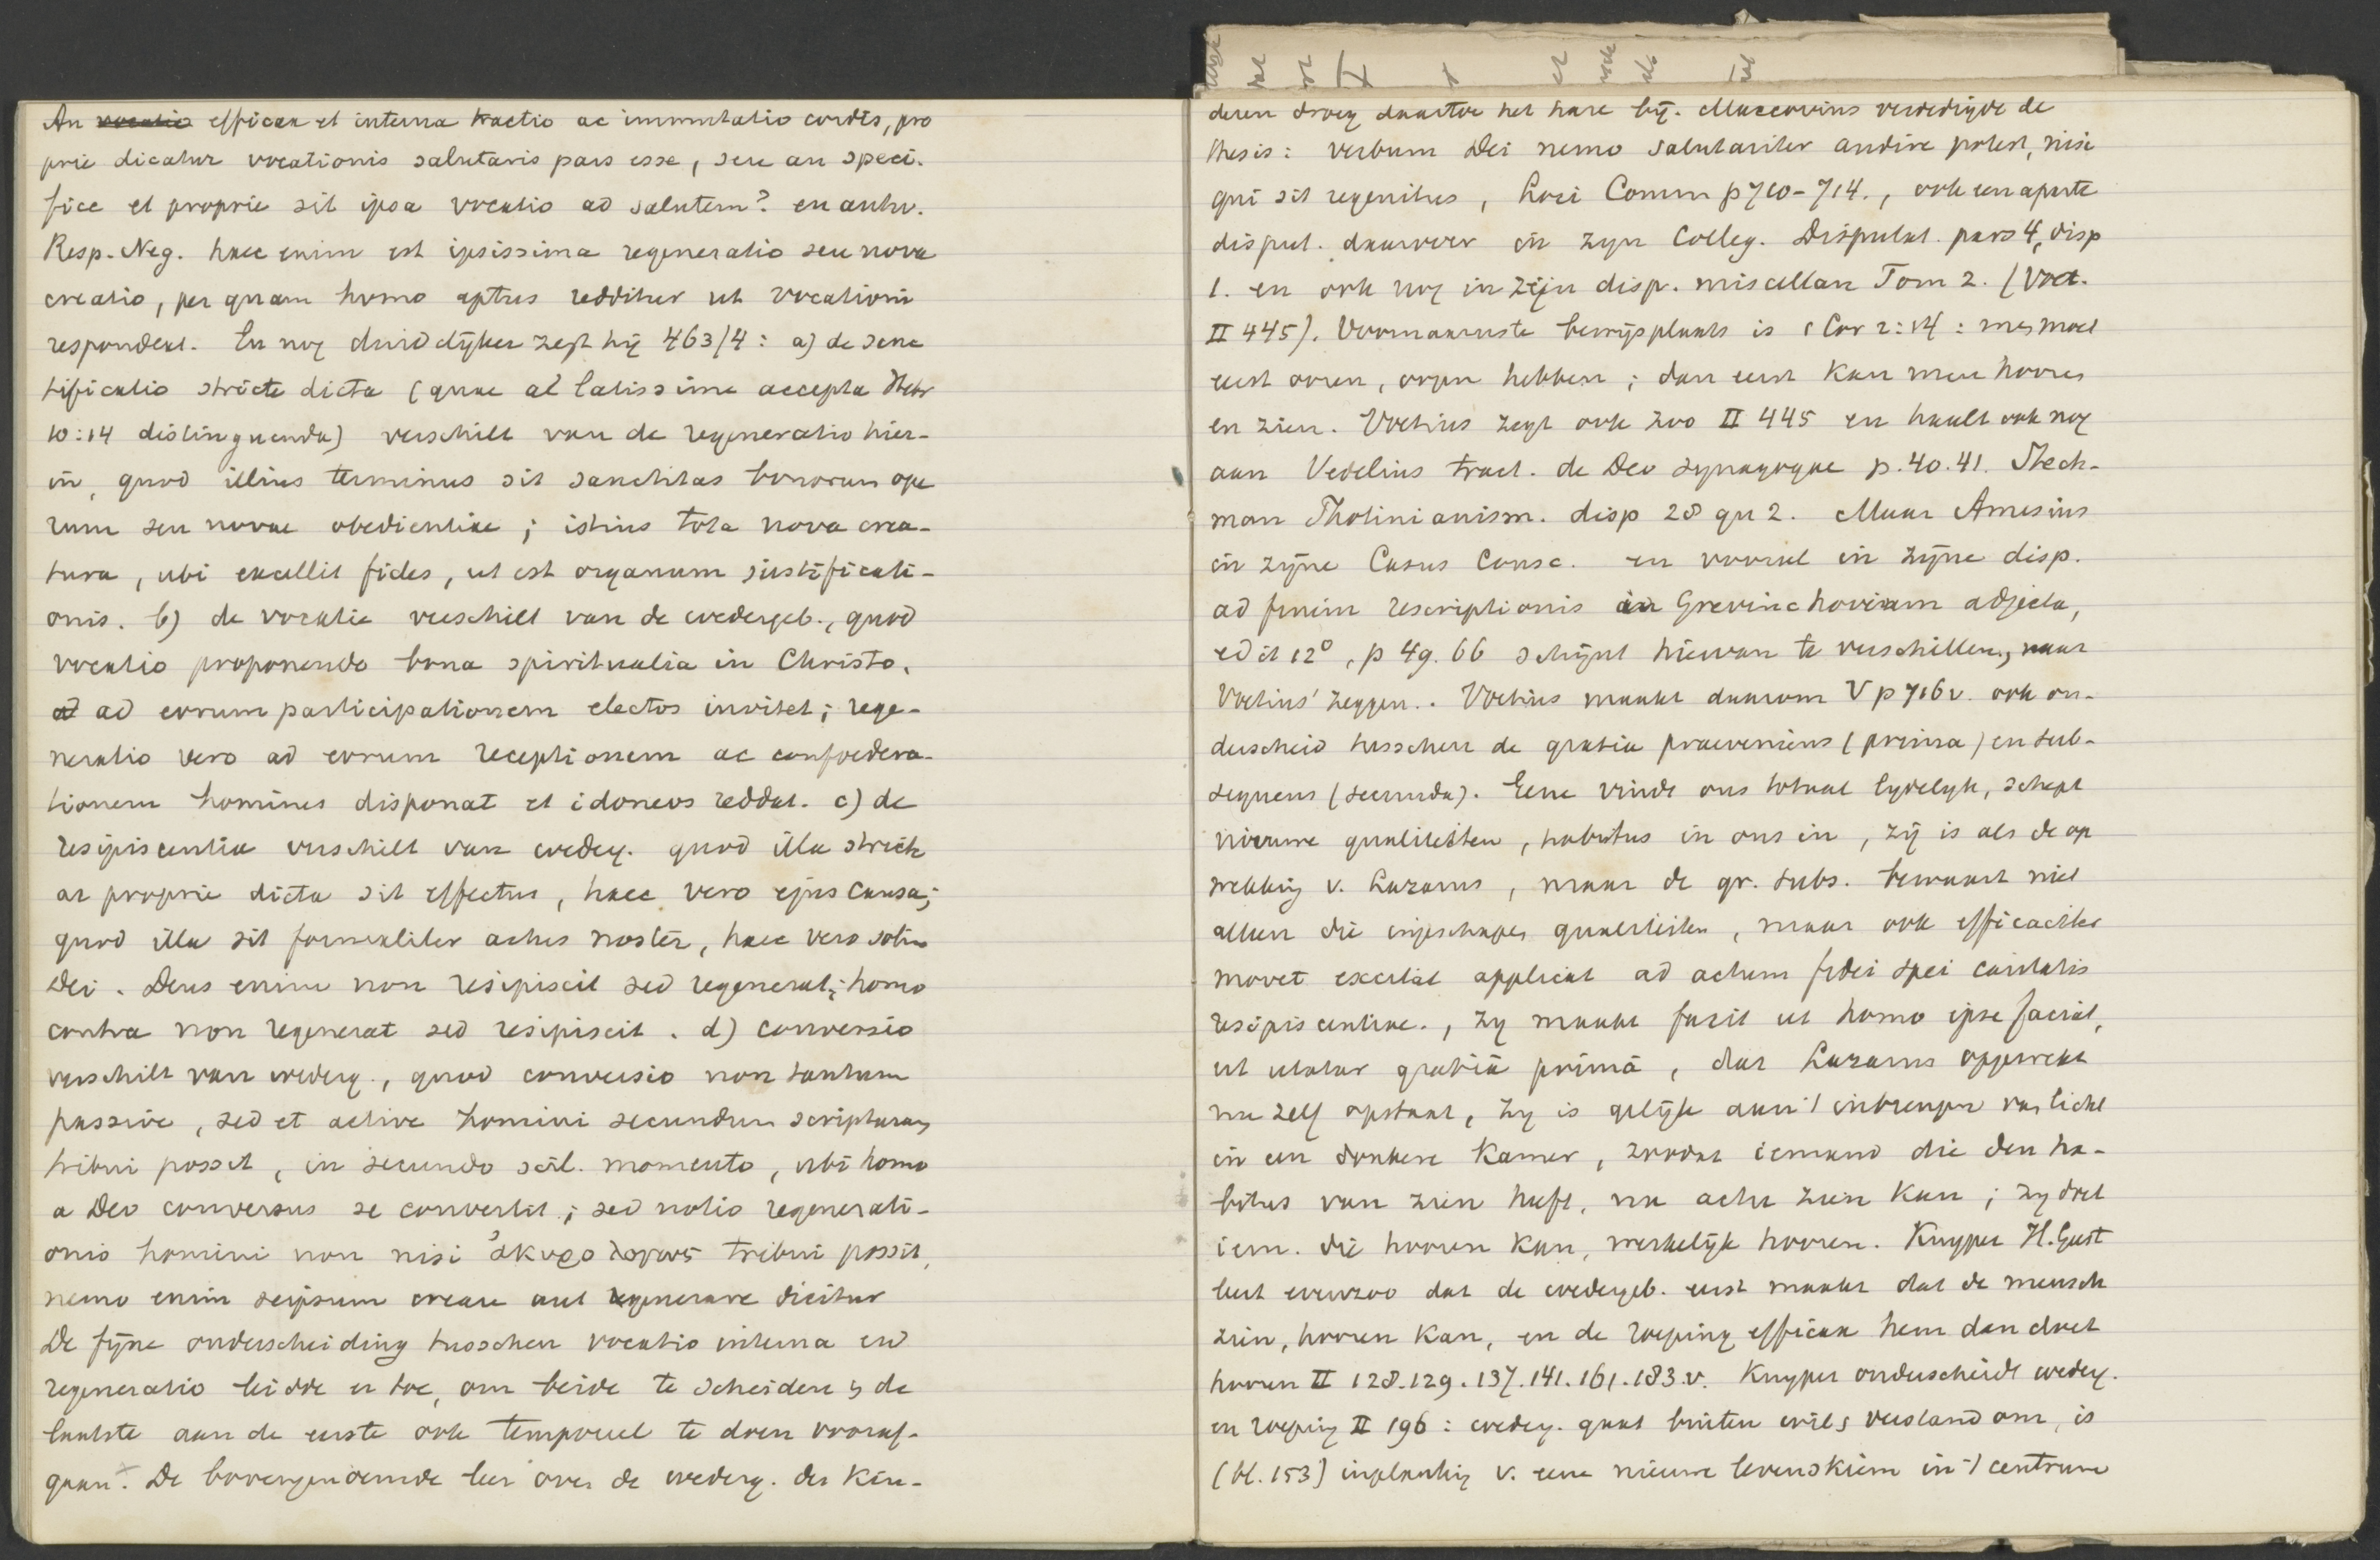 An efficax et interna tractio ac immutatio cordis, pro
prie dicatur vocationis salutaris pars esse, seu an speci-
fice et proprie sit ipsa vocatio ad salutem? en antw.
Resp. Neg. haec enim est ipsissima regeneratio seu nova
creatio, per quam homo aptus redditur ut vocationi
respondeat. En nog duidelijker zegt hij 463/4: a) de sanc
tificatio stricte dicta (quae a latissime accepta Hebr
10:14 distinguenda) verschilt van de regeneratio hier-
in, quod illius terminus sit sanctitas bonorum ope
rum seu novae obedientiae; istius tota nova crea-
tura, ubi excellit fides, ut est organum justificati-
onis. b) de vocatio verschilt van de wedergeb., quod
vocatio proponendo bona spiritualia in Christo,
ad eorum participationem electos invitet; rege-
neratio vero ad eorum receptionem ac confoedera-
tionem homines disponat et idoneos reddat. c) de
resipiscentia verschilt van wederg. quod illa stricte
ac proprie dicta sit effectus, haec vero ejus causa;
quod illa sit formaliter actus noster, haec vero solius
Dei. Deus enim non resipiscit sed regenerat; homo
contra non regenerat sed resipiscit. d) conversio
verschilt van wederg., quod conversio non tantum
passive, sed et active homini secundum scripturam
tribui possit, in secundo scil. momento, ubi homo
a Deo conversus se convertit; sed notio regenerati-
onis homini non nisi ἀκυρολόγως tribui possit,
nemo enim seipsum creare aut regenerare dicitur
De fijne onderscheiding tusschen vocatio interna en
regeneratio leidde er toe, om beide te scheiden & de
laatste aan de eerste ook temporeel te doen vooraf-
gaan. De bovengenoemde leer over de wederg. der kin-
deren droeg daartoe het hare bij. Maccovius verdedigde de
thesis: verbum Dei nemo salutariter audire potest, nisi
qui sit regenitus, Loci Comm p 710-714., ook een aparte
disput. daarover in zijn Colleg. Disputat. pars 4, disp
1. en ook nog in zijn disp. miscellan Tom 2. (Voet.
II 445). Voornaamste bewijsplaats is 1 Cor 2:14: men moet
eerst ooren, oogen hebben; dan eerst kan men hooren
en zien. Voetius zegt ook zoo II 445 en haalt ook nog
aan Vedelius tract. de Deo synagogae p. 40.41. Stech-
man Photinianism. disp 28 qu 2. Maar Amesius
in zijne Casus Consc. en vooral in zijne disp.
ad finem rescriptionis in Grevinchovium adjecta,
edit 12°, p 49. 66 schijnt hiervan te verschillen, naar
Voetius' zeggen. Voetius maakt daarom V p 716v. ook on-
derscheid tusschen de gratia praeveniens (prima) en sub-
sequens (secunda). Eene vindt ons totaal lydelyk, schept
nieuwe qualiteiten, habitus in ons in, zij is als de op
wekking v. Lazarus, maar de gr. subs. bewaart niet
alleen die ingeschapen qualiteiten, maar ook efficaciter
movet excitat applicat ad actum fidei spei caritatis
resipiscentiae., zy maakt facit ut homo ipse faciat,
ut utatur gratiâ primâ, dat Lazarus opgewekt
nu zelf opstaat, zy is gelijk aan 't inbrengen van licht
in een donkere kamer, zoodat iemand die den ha-
bitus van zien heeft, nu actu zien kan; zy doet
iem. die hooren kan, werkelijk hooren. Kuyper H. Geest
leert evenzoo dat de wedergeb. eerst maakt dat de mensch
zien, hooren kan, en de roeping efficax hem dan doet
hooren II 128.129.137.141.161.183.v. Kuyper onderscheidt wederg.
en roeping II 196: wederg. gaat buiten wil & verstand om, is
(bl. 153) inplanting v. eene nieuwe levenskiem in 't centrum